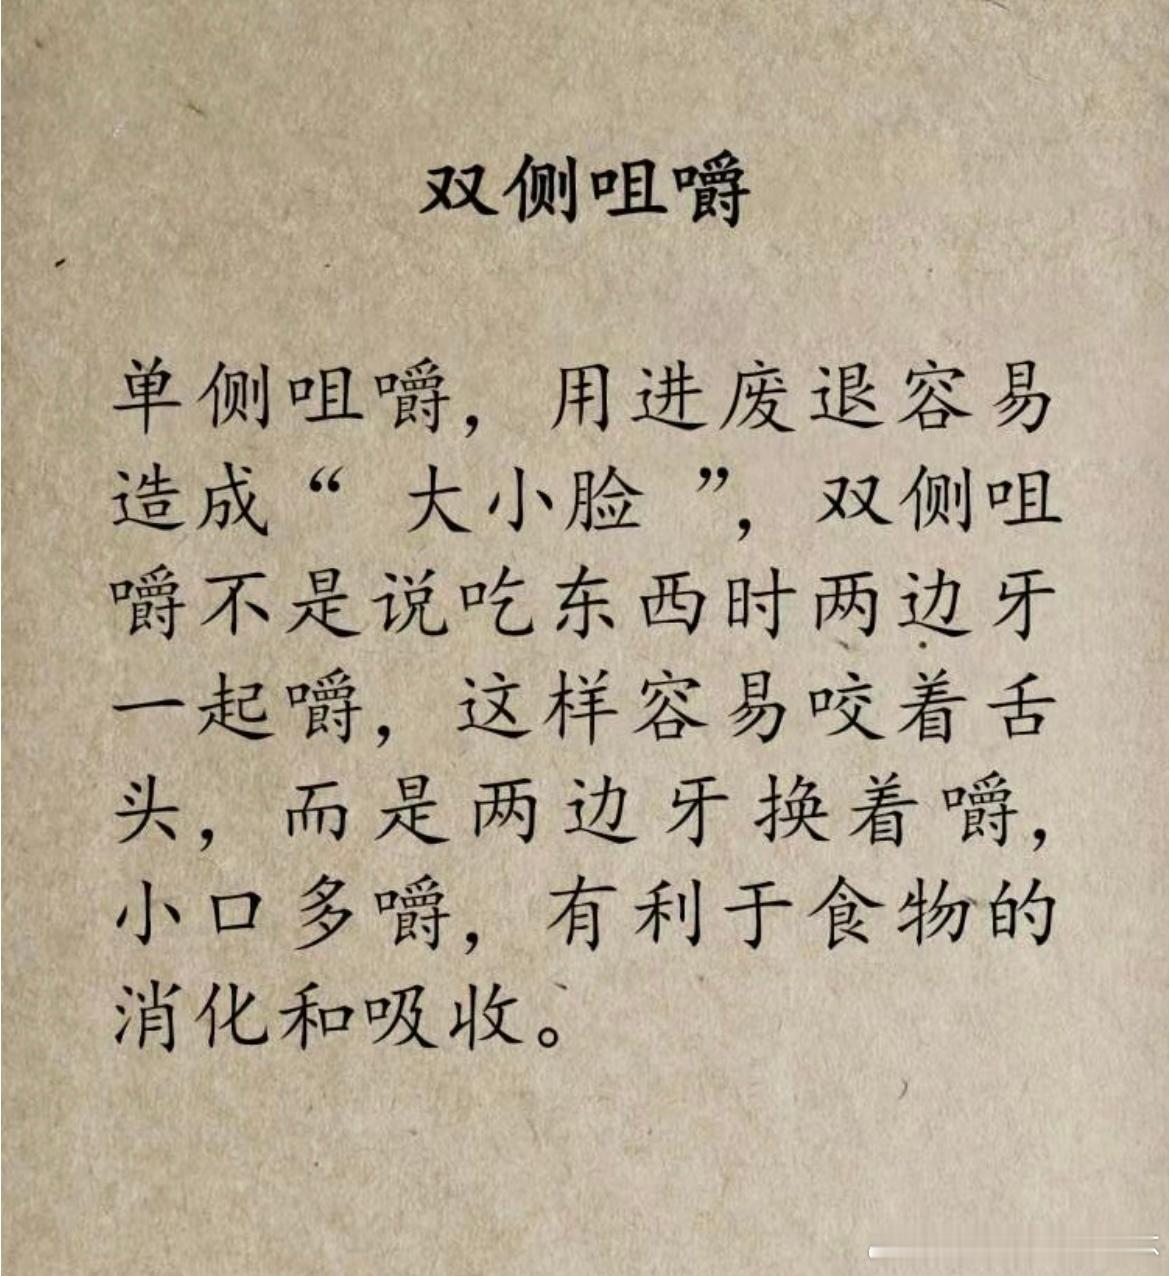 双侧咀嚼
单侧咀嚼，用进废退容易
造成“大小脸”，双侧咀
嚼不是说吃东西时两边牙
一起嚼，这样容易咬着舌
头，而是两边牙换着嚼，
小口多嚼，有利于食物的
消化和吸收。